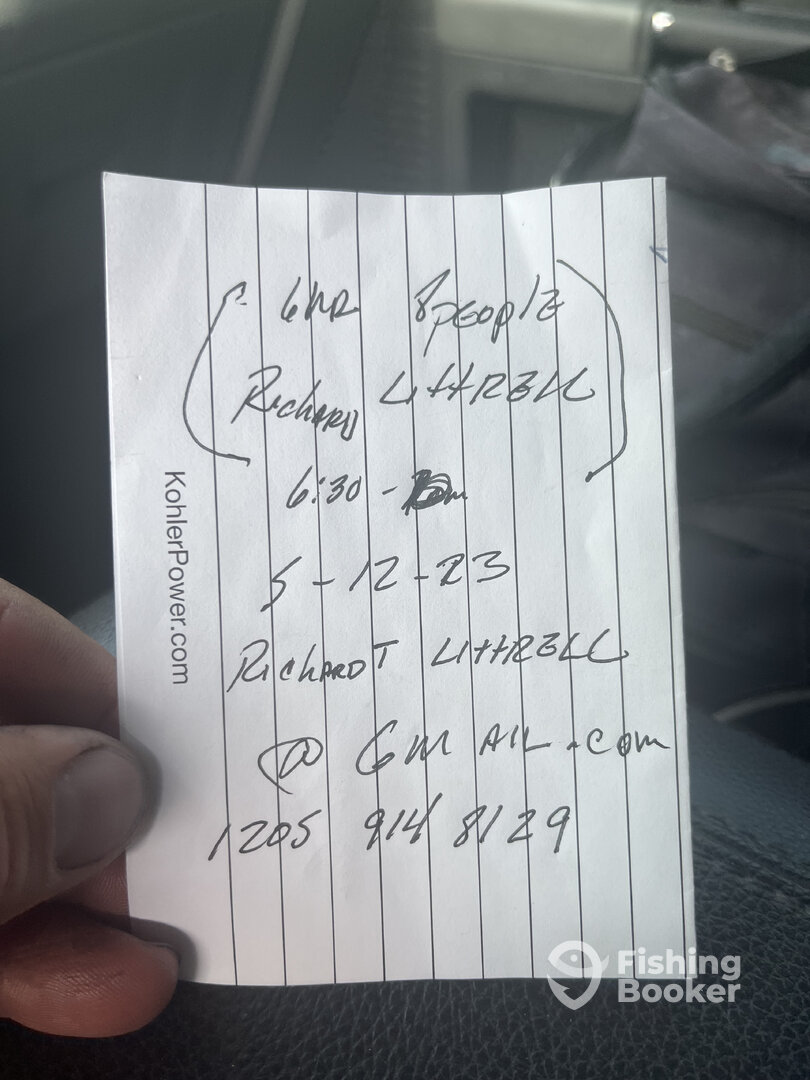 6HR 8PEOPLE
RICHARD LITTRELL
6:30 -
5-12-23
RICHARDT LITTRELL
@ GMAIL.com
1205 914 8129
KohlerPower.com
Fishing
Booker